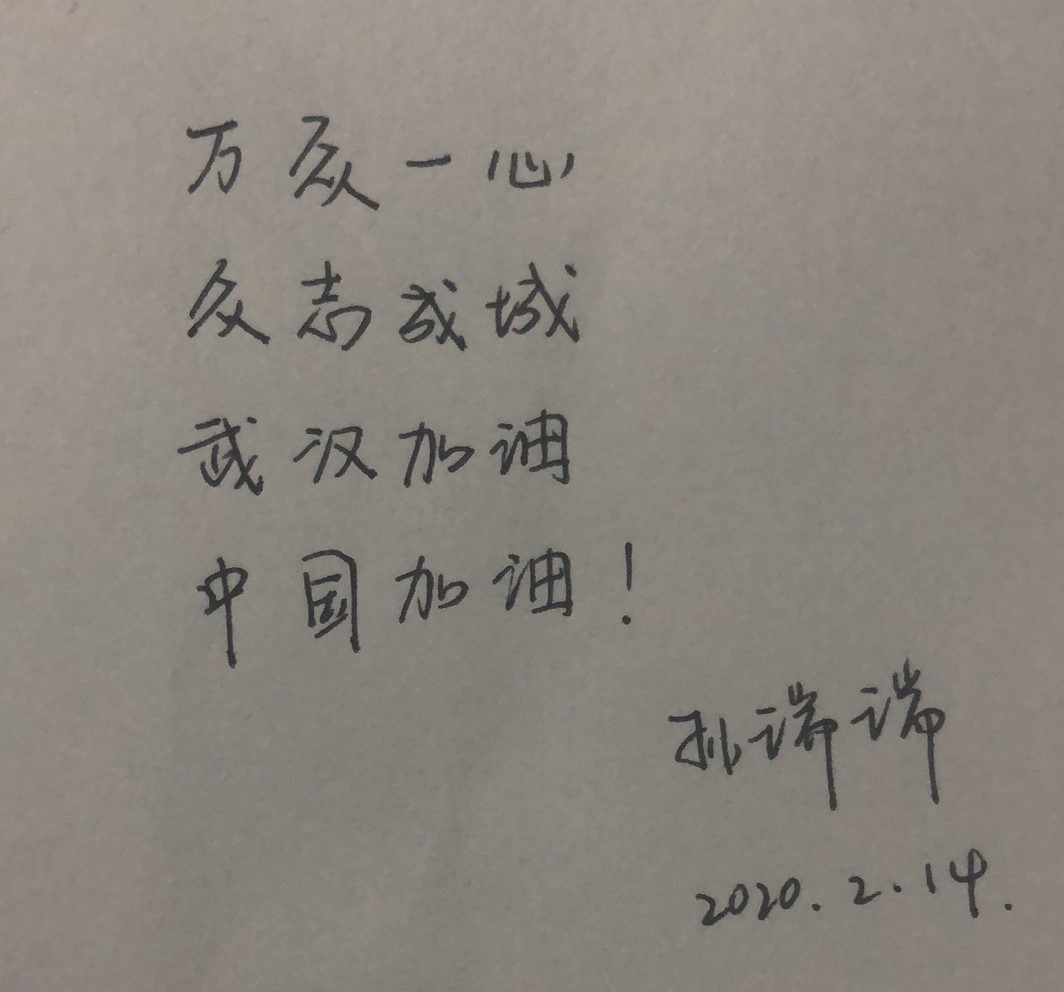 万众一心
众志成城
武汉加油
中国加油！
孙端端
2020.2.14.